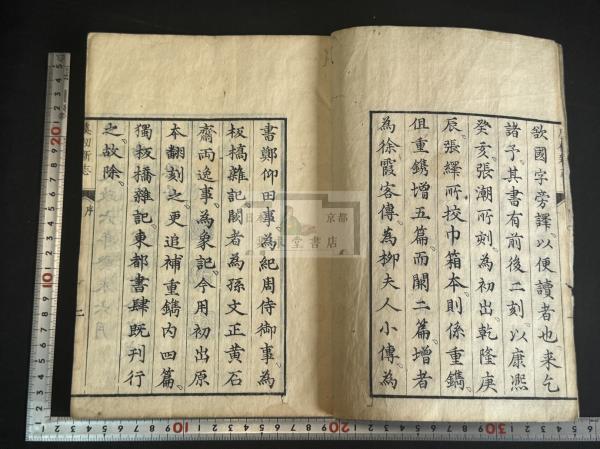 欲國字旁譯以便讀者也来乞
諸予。其書有前後二刻。以康熈
癸亥張潮所刻。為初出。乾隆庚
辰。張繹所校巾箱本。則係重鐫。
但重鐫增五篇。而闕二篇。增者
為徐霞客傳。為柳夫人小傳。為
書鄭仰田事。為紀周侍御事。為
板橋雜記。闕者。為孫文正黄石
齋兩逸事。為象記。今用初出原
本翻刻之。更追補重鐫内四篇。
獨板橋雜記。東都書肆既刊行
之。故除。
虞初新志
序
二